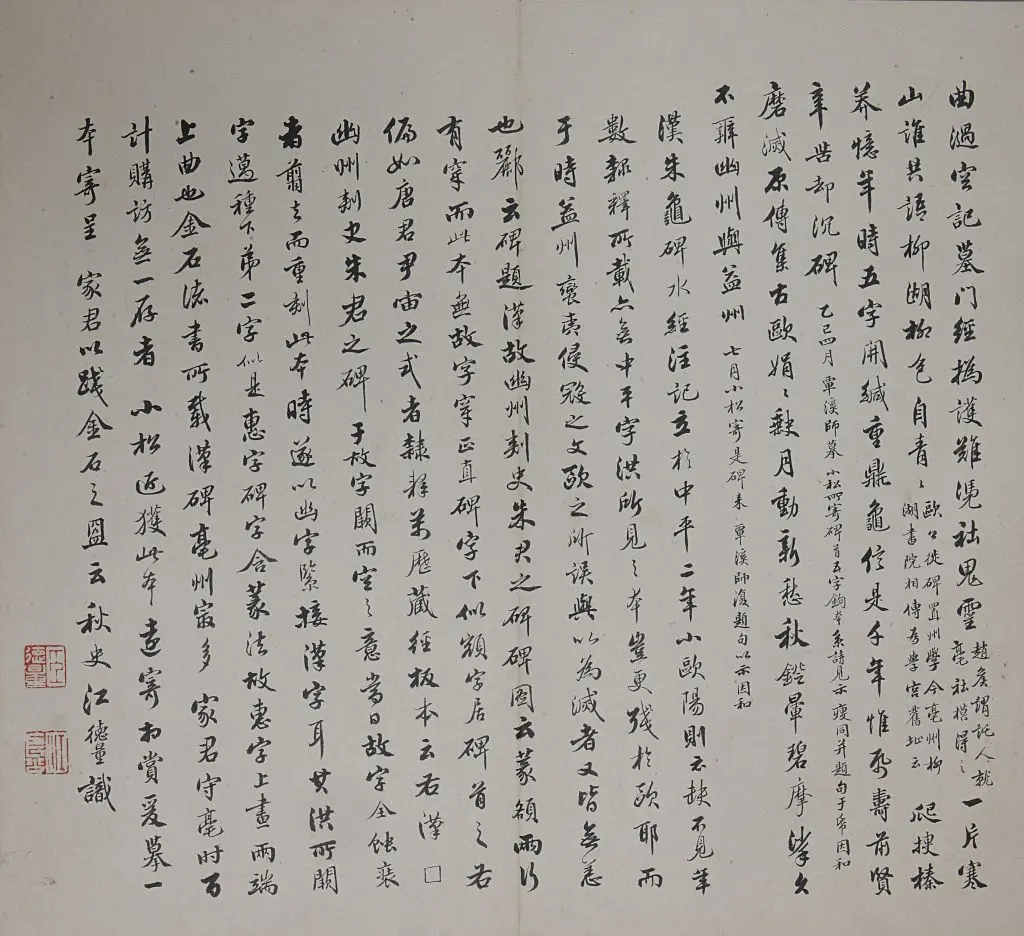 曲過空記墓門經摀護難憑社鬼靈趙矦謂託人就亳社模得之一片寒
山誰共語柳湖柳色自青〻歐公從碑置州學今亳州柳湖書院相傳為學宮舊址云爬搜榛
莽憶年時五字開緘重鼎龜信是千年惟夀前賢
辛苦却沉碑乙巳四月覃溪師摹小松所寄碑首五字鉤本系詩見示瘦同并題句于帋因和
磨滅原傳集古歐娟〻缺月動新愁秋鐙暈碧摩挲久
不辨幽州與益州七月小松寄是碑来覃溪師復題句以示因和
漢朱龜碑水經注記立於中平二年小歐陽則云缺不見年
數隸釋所載亦無中平字洪所見之本豈更殘於歐耶而
于時益州蠻夷侵寇之文歐之所誤與以為滅者又皆無恙
也酈云碑題漢故幽州刺史朱君之碑碑圖云篆額兩行
有穿而此本無故字穿正直碑字下似額字居碑首之右
偏如唐君尹宙之式者隸釋萬歷藏經板本云右漢□
幽州刺史朱君之碑于故字闕而空之意當日故字全蝕裝
者翦去而重刻此本時遂以幽字緊接漢字耳其洪所闕
字邁種下第二字似是惠字碑字含篆法故惠字上畫兩端
上曲也金石諸書所載漢碑亳州寂多家君守亳时百
計購訪無一存者小松近獲此本遠寄相賞爰摹一
本寄呈家君以踐金石之盟云秋史江德量識
江德量印